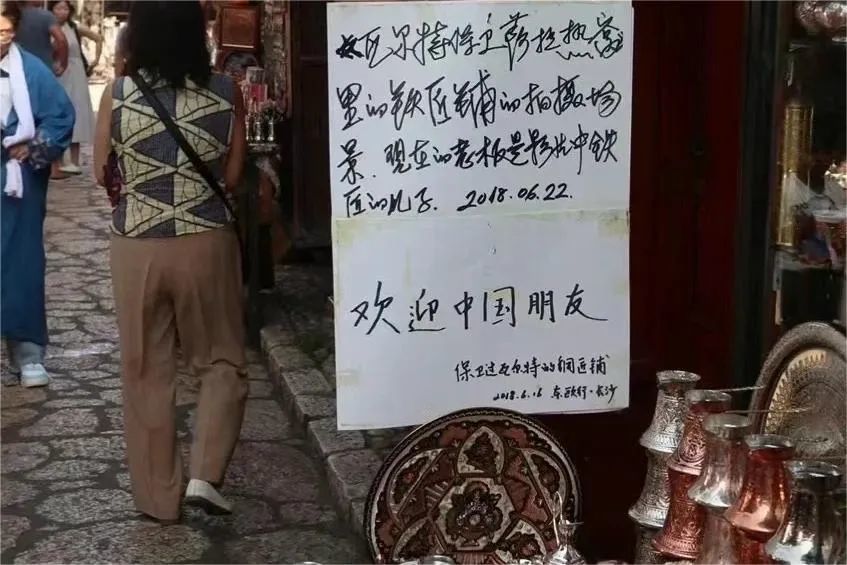 《瓦尔特保卫萨拉热窝
里的铁匠铺的拍摄场
景.现在的老板是影片中铁
匠的儿子. 2018.06.22.
欢迎中国朋友
保卫过瓦尔特的铜匠铺
2018.6.16 东欧行·长沙